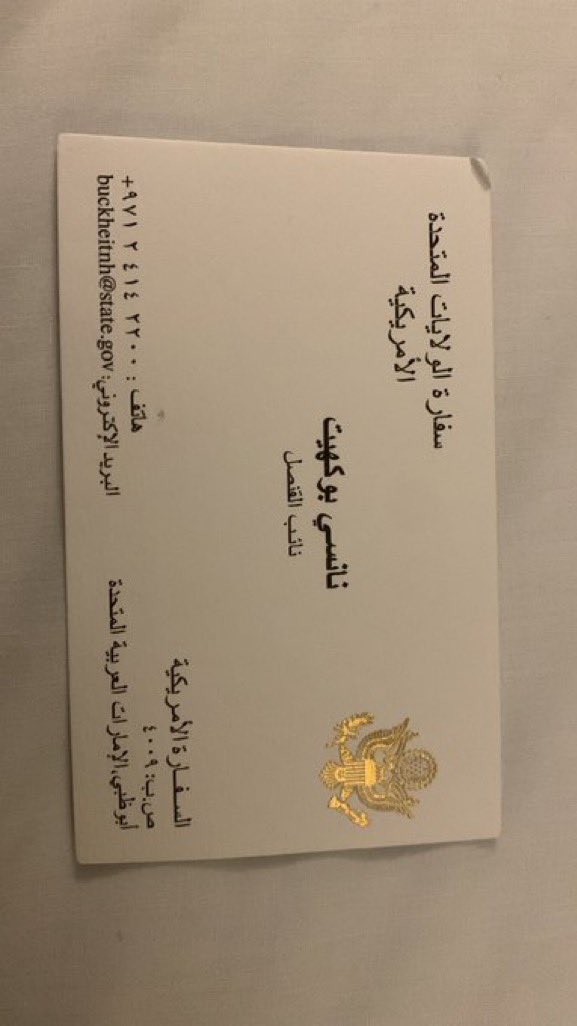 سفارة الولايات المتحدة
الأمريكية
نانسي بوكهيت
نائب القنصل
السفارة الأمريكية
ص.ب: ٤٠٠٩
أبوظبي، الإمارات العربية المتحدة
هاتف : ٢٢٠٠ ٤١٤ ٢ ٩٧١+
البريد الإلكتروني: buckheitnh@state.gov